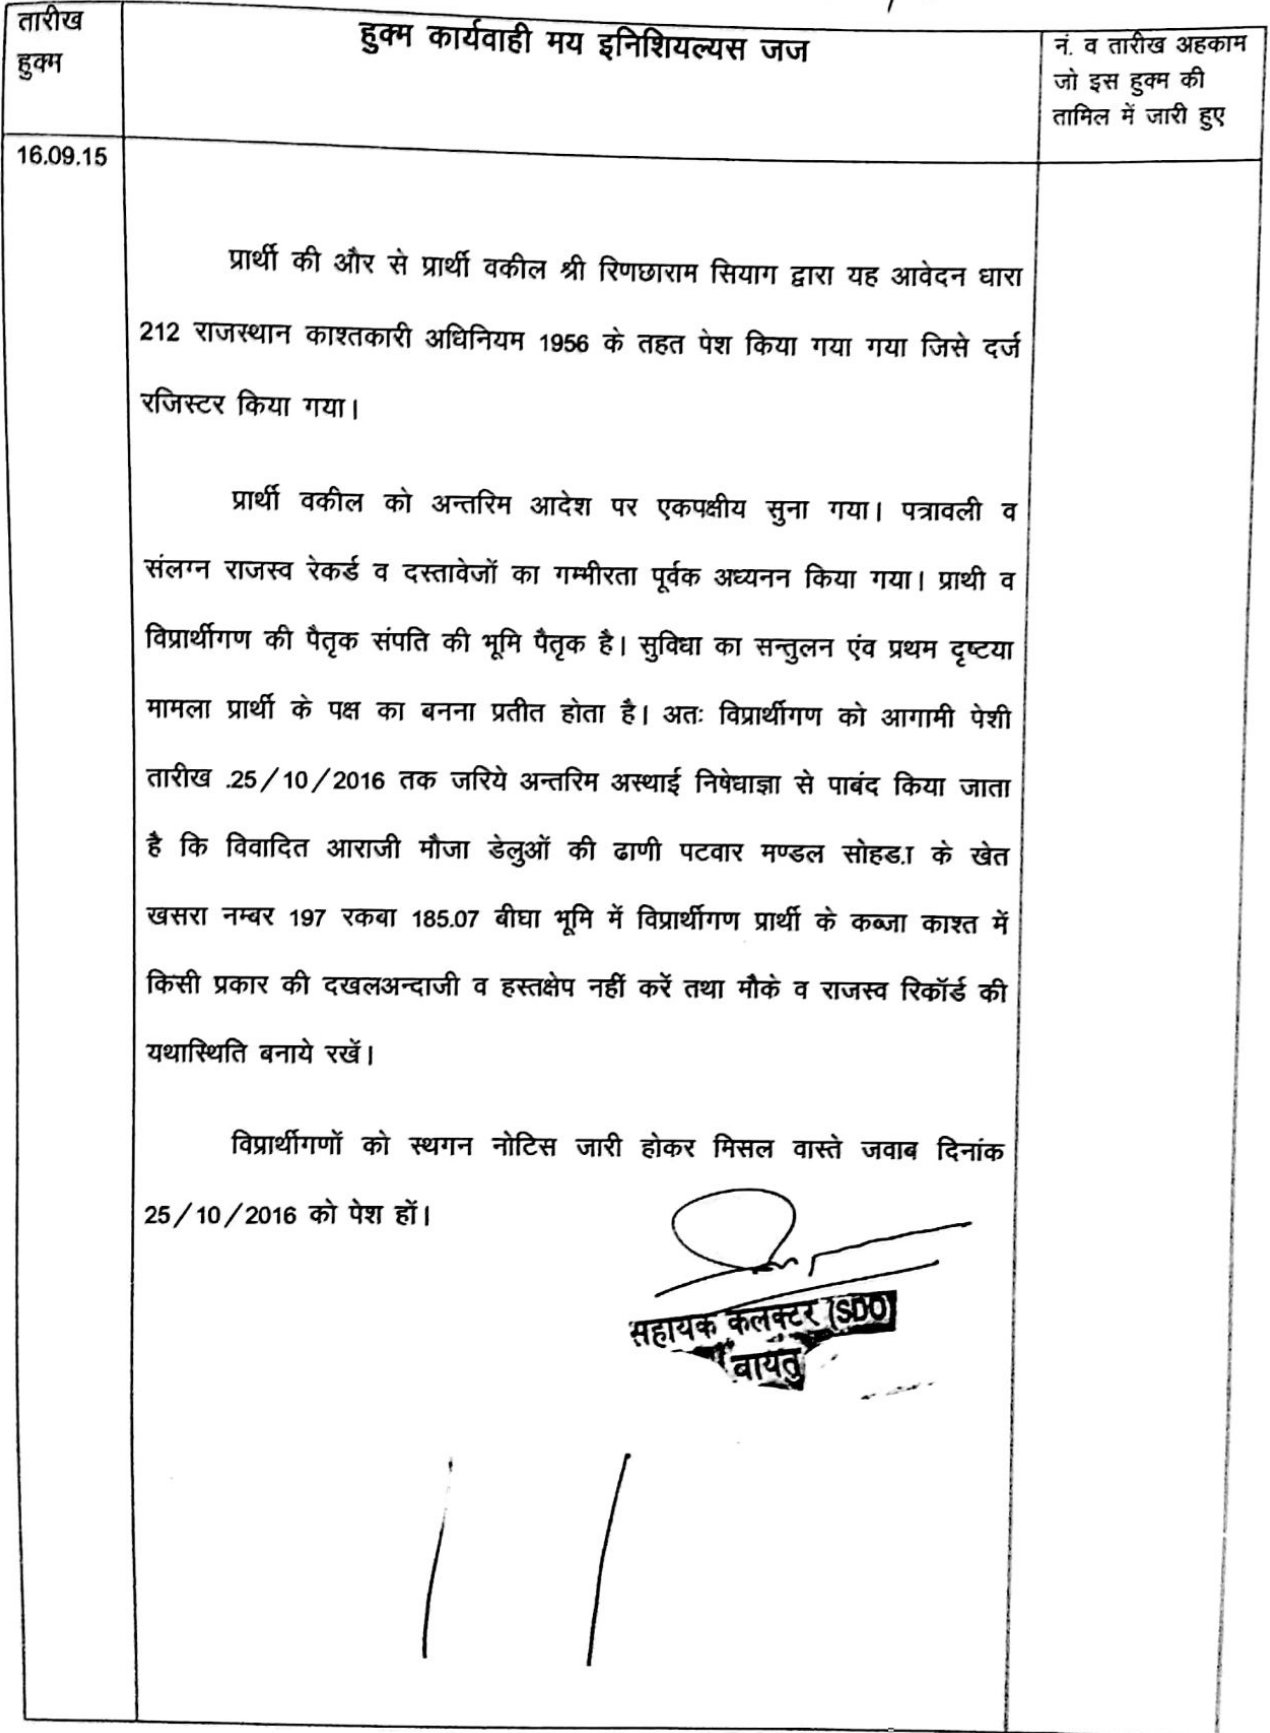 तारीख
हुक्म
हुक्म कार्यवाही मय इनिशियल्यस जज
नं. व तारीख अहकाम
जो इस हुक्म की
तामिल में जारी हुए
16.09.15
प्रार्थी की और से प्रार्थी वकील श्री रिणछाराम सियाग द्वारा यह आवेदन धारा
212 राजस्थान काश्तकारी अधिनियम 1956 के तहत पेश किया गया गया जिसे दर्ज
रजिस्टर किया गया।
प्रार्थी वकील को अन्तरिम आदेश पर एकपक्षीय सुना गया। पत्रावली व
संलग्न राजस्व रेकर्ड व दस्तावेजों का गम्भीरता पूर्वक अध्यनन किया गया। प्राथी व
विप्रार्थीगण की पैतृक संपति की भूमि पैतृक है। सुविधा का सन्तुलन एंव प्रथम दृष्टया
मामला प्रार्थी के पक्ष का बनना प्रतीत होता है। अतः विप्रार्थीगण को आगामी पेशी
तारीख .25/10/2016 तक जरिये अन्तरिम अस्थाई निषेधाज्ञा से पाबंद किया जाता
है कि विवादित आराजी मौजा डेलुओं की ढाणी पटवार मण्डल सोहड.ा के खेत
खसरा नम्बर 197 रकबा 185.07 बीघा भूमि में विप्रार्थीगण प्रार्थी के कब्जा काश्त में
किसी प्रकार की दखलअन्दाजी व हस्तक्षेप नहीं करें तथा मौके व राजस्व रिकॉर्ड की
यथास्थिति बनाये रखें।
विप्रार्थीगणों को स्थगन नोटिस जारी होकर मिसल वास्ते जवाब दिनांक
25/10/2016 को पेश हों।
सहायक कलक्टर (SDO)
बायतु